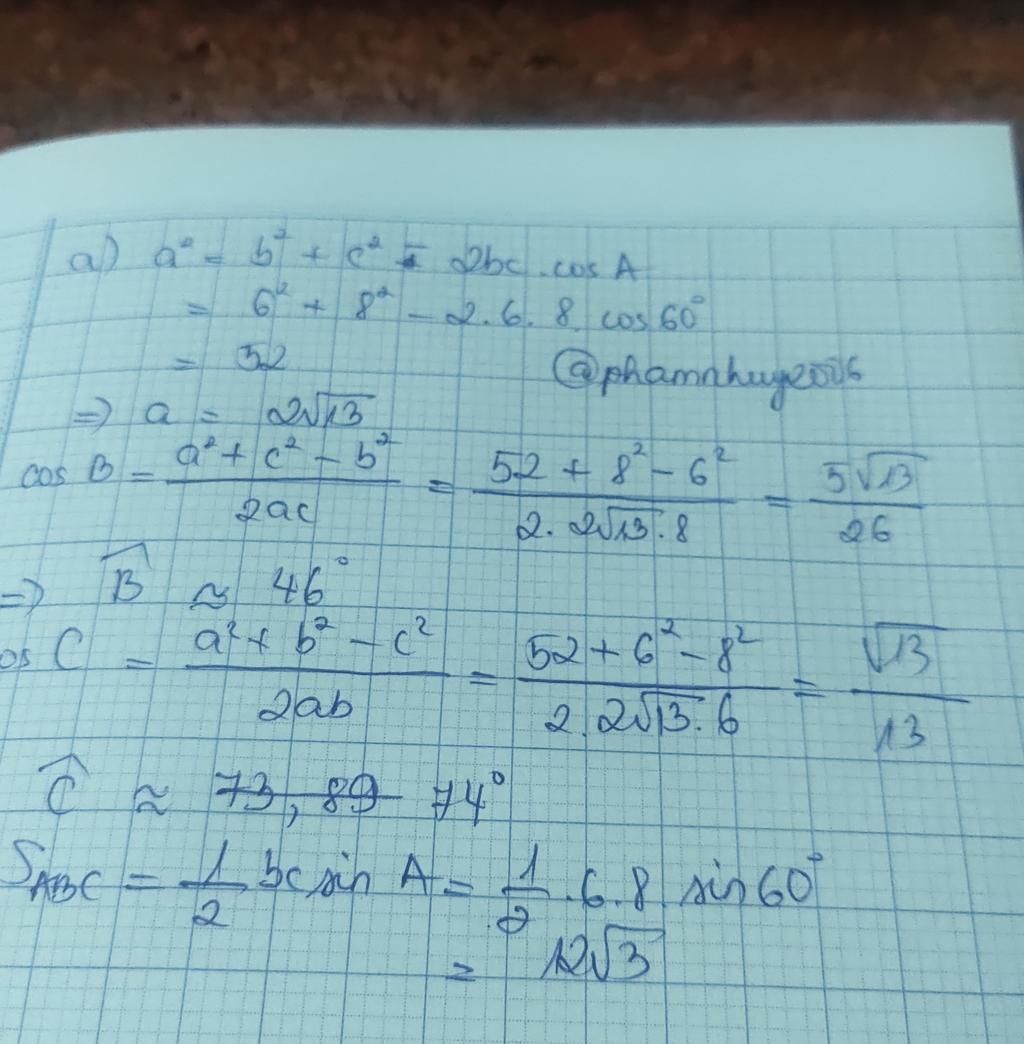 a) a² = b² + c² - 2bc . cos A
= 6² + 8² - 2.6.8. cos 60°
= 52
@phamnhuy2006
=> a = 2√13
cos B = (a² + c² - b²)/(2ac) = (52 + 8² - 6²)/(2.2√13.8) = 5√13/26
=> B̂ ≈ 46°
os C = (a² + b² - c²)/(2ab) = (52 + 6² - 8²)/(2.2√13.6) = √13/13
Ĉ ≈ 73,89 74°
S_ABC = 1/2 bc sin A = 1/2 .6.8 sin 60°
= 12√3